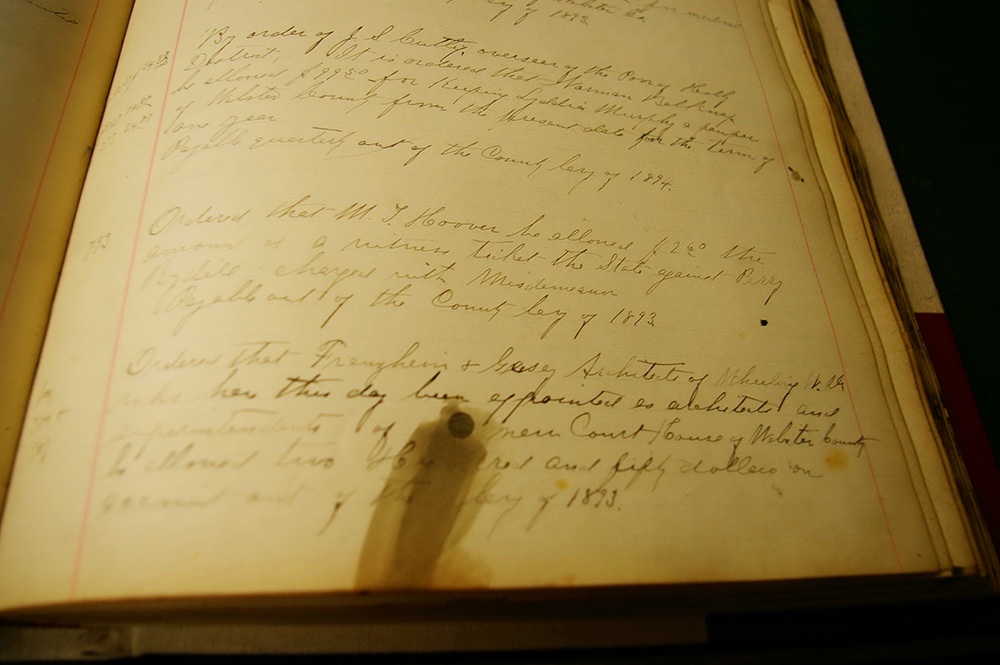 levy of 1893
By order of J. S. Cutlip overseer of the Poor of Holly
District, It is ordered that Harman Belknap
be allowed $99.50 for Keeping Lyddia Murphy a pauper
of Webster County from the present date for the term of
one year
Payable quarterly out of the County levy of 1894.
Ordered that M. T. Hoover be allowed $2.60 the
amount of a witness ticket the State against Perry
charged with Misdemeanor
Payable out of the County levy of 1893
Ordered that Franzheim & Giesey Architects of Wheeling W. Va
who has this day been appointed as architects and
superintendents of new Court House of Webster County
be allowed two Hundred and fifty dollars on
account out of the levy of 1893.